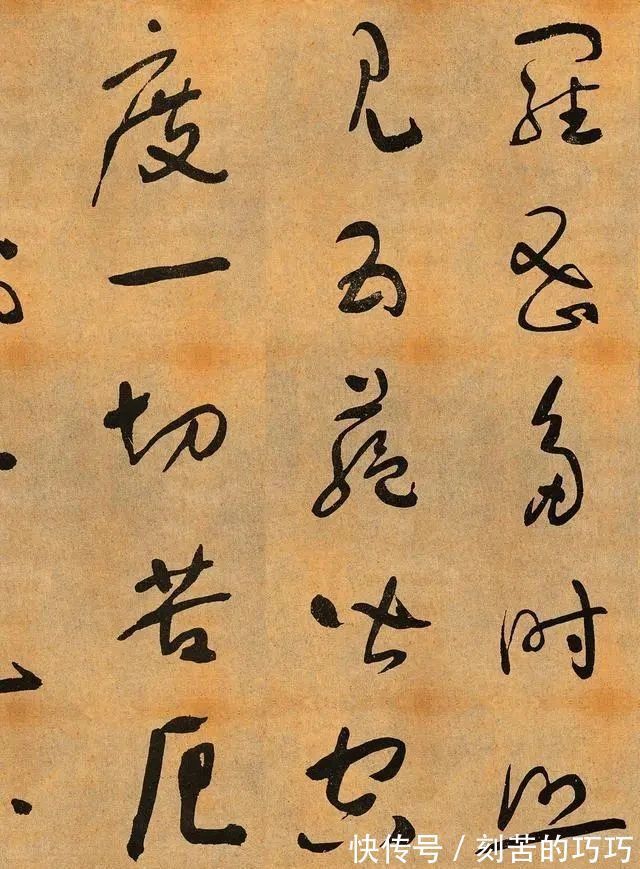 羅蜜多時照
見五蘊皆空
度一切苦厄
快传号 / 刻苦的巧巧